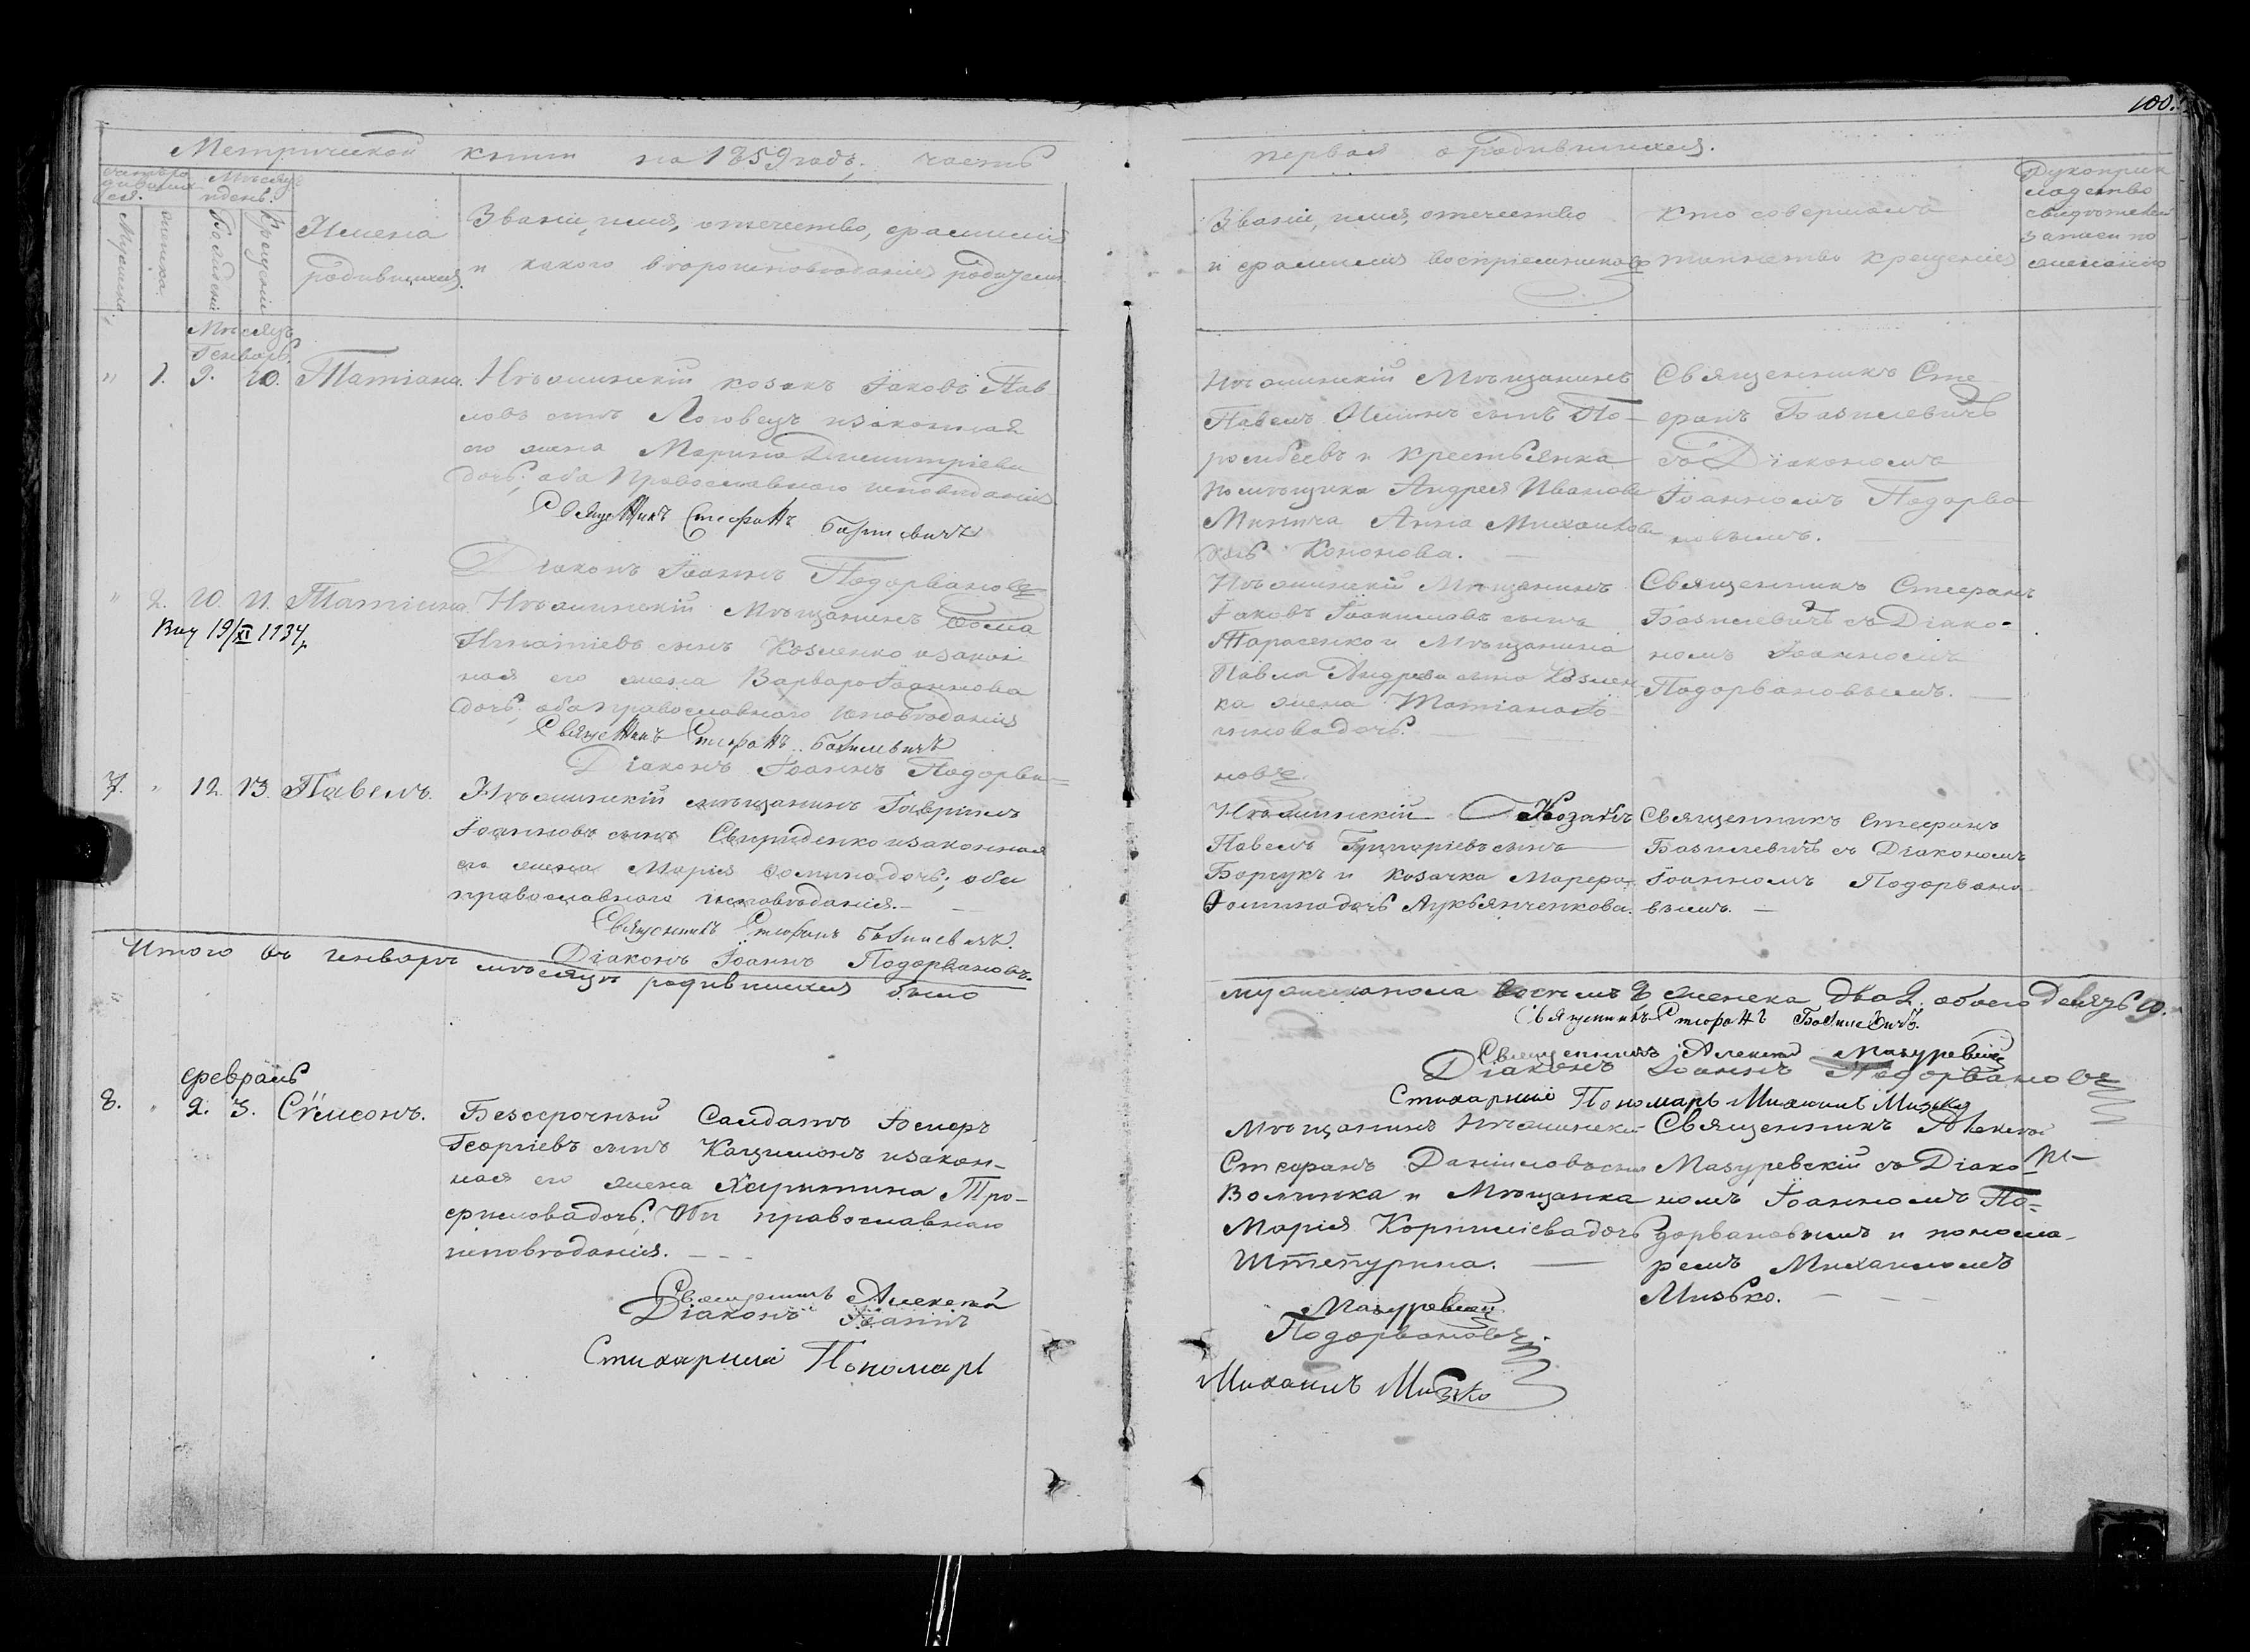 100.
Метрической книги на 1859 годъ, часть
первая о родившихся.
Мѣсяцъ
и день.
Мужеска
женска
Рожденія
Крещенія
Имена
родившихся.
Званіе, имя, отечество, фамилія
и какого вѣроисповѣданія родители
Званіе, имя, отечество
и фамилія воспріемниковъ
Кто совершалъ
таинство крещенія
Рукоприк
ладство
свидѣтелей
записи по
желанію
Мѣсяцъ
Генварь.
" 1. 9. 10. Татіана.
Нѣжинскій козакъ Іаковъ Пав
ловъ сынъ Логовецъ и законная
его жена Марина Димитріева
дочь; оба православнаго исповѣданія
Священникъ Стефанъ Базилевичъ
Діаконъ Іоаннъ Подорвановъ
Нѣжинскій Мѣщанинъ
Павелъ сынъ По-
и крестьянка
помѣщика Андрея Иванова
Анна Михаилова
дочь Кононова.
Священникъ Сте
фанъ Базилевичъ
съ Діакономъ
Іоанномъ Подорва
новымъ.
" 2. 10. 11. Татіана.
Виу 19/XI 1934 г.
Нѣжинскій Мѣщанинъ Ѳома
Игнатіевъ сынъ Козленко и закон
ная его жена Варвара Іоаннова
дочь, оба православнаго исповѣданія
Священникъ Стефанъ Базилевичъ
Діаконъ Іоаннъ Подорва=
новъ.
Нѣжинскій Мѣщанинъ
Іаковъ Іоакимовъ сынъ
Тарасенко и Мѣщанина
Павла Андреева сына Козлен
ка жена Татіана
дочь.
Священникъ Стефанъ
Базилевичъ съ Діако-
номъ Іоанномъ
Подорвановымъ.
7. " 12. 13. Павелъ.
Нѣжинскій мѣщанинъ Гавріилъ
Іоанновъ сынъ Свириденко и законная
его жена Марія Ѳомина дочь; оба
православнаго исповѣданія.
Священникъ Стефанъ Базилевичъ.
Діаконъ Іоаннъ Подорвановъ.
Нѣжинскій Козакъ
Павелъ Григоріевъ сынъ
Борсукъ и козачка Марфа
Ѳомина дочь Лукьянченкова.
Священникъ Стефанъ
Базилевичъ съ Діакономъ
Іоанномъ Подорвано
вымъ.
Итого въ генварѣ мѣсяцѣ родившихся было
мужеска пола женска два 2. обоего
Священникъ Стефанъ Базилевичъ.
Священникъ Алексій Мазуревскій
Діаконъ Іоаннъ Подорвановъ
Стихарный Пономарь Михаилъ Мизько
февраль
8. " 2. 3. Сѵмеонъ.
Безсрочный Салдатъ
Георгіевъ сынъ и закон-
ная его жена Харитина Тро-
фимова дочь; оби православнаго
исповѣданія.
Священникъ Алексій
Діаконъ Іоаннъ
Стихарный Пономарь
Мѣщанинъ Нѣжинскій
Стефанъ Даніиловъ сынъ
Волынка и Мѣщанка
Марія Корниліева дочь
Штепурина.
Мазуревскій
Подорвановъ.
Михаилъ Мизько
Священникъ Алексій
Мазуревскій съ Діако-
номъ Іоанномъ По-
дорвановымъ и понома-
ремъ Михаиломъ
Мизько.